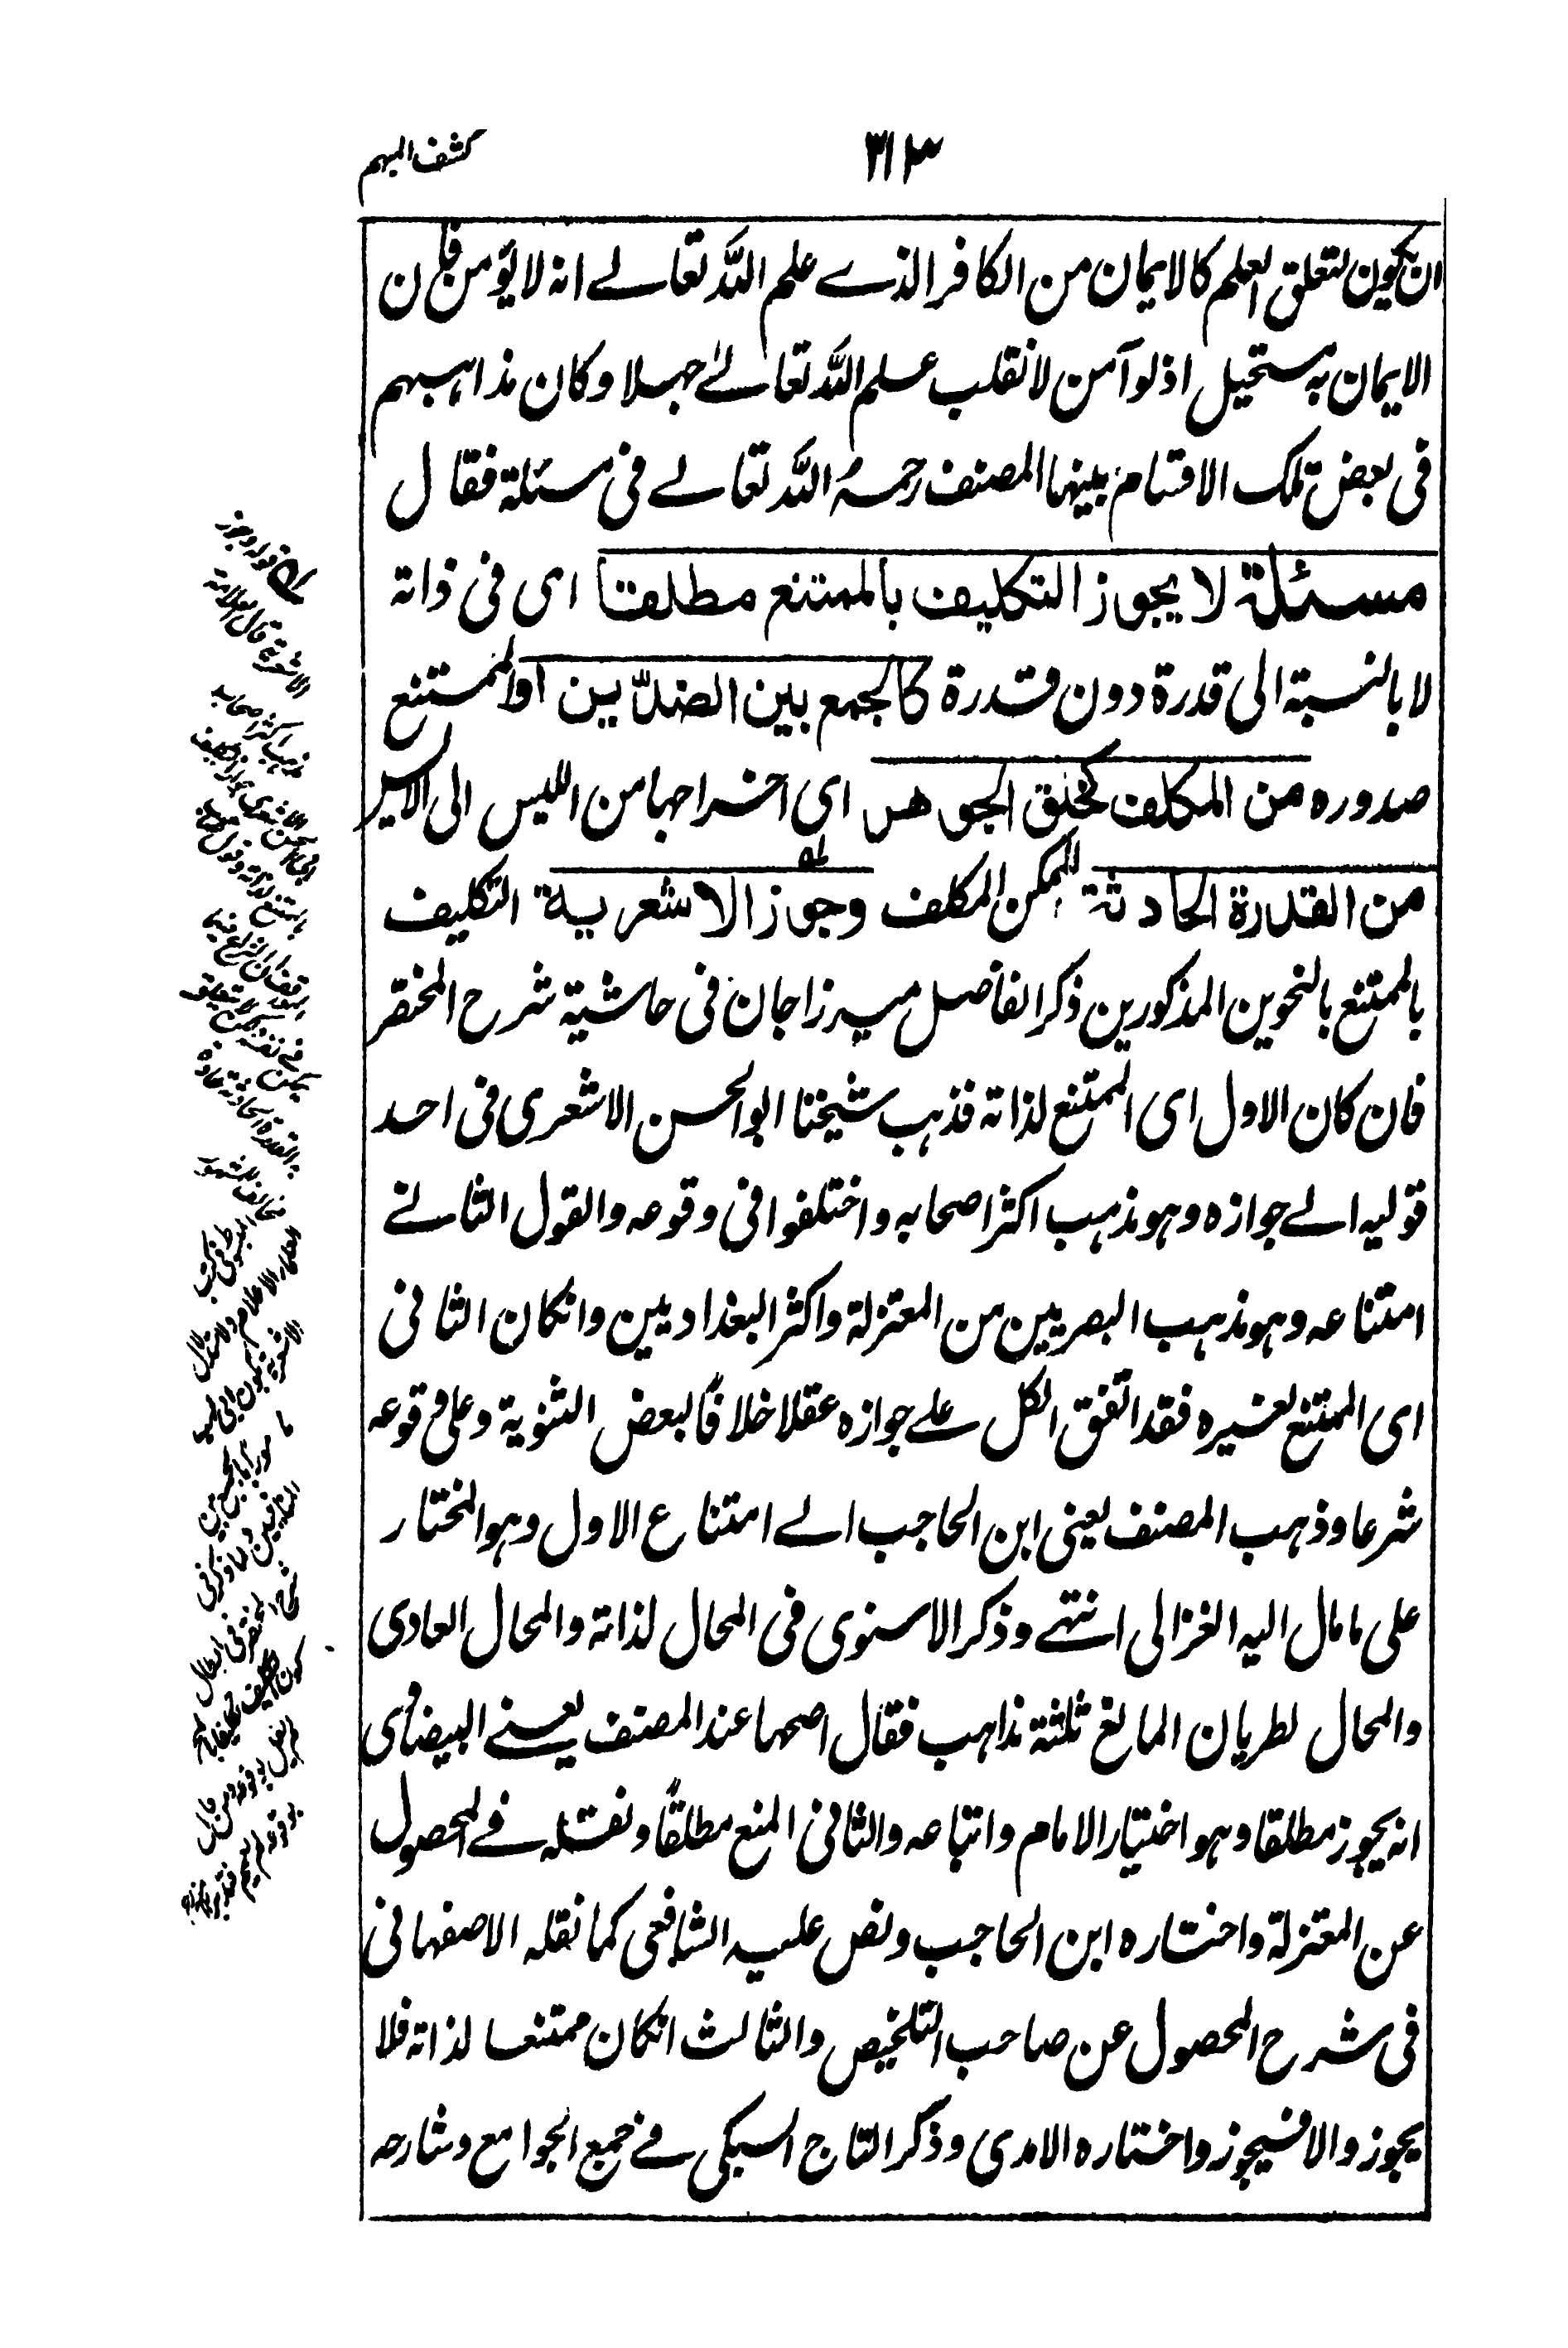 ٣١٣
كشف المبهم
ان يكون لتعلق العلم كالايمان من الكافر الذے علم الله تعالے انه لا يؤمن فان
الايمان منه مستحيل اذ لو آمن لانقلب علم الله تعالےٰ جهلا وكان مذاهبهم
فى بعض تلك الاقسام بينها المصنف رحمه الله تعالے فى مسئلة فقال
مسئلة لا يجوز التكليف بالممتنع مطلقا اى فى ذاته
لا بالنسبة الى قدرة دون قدرة كالجمع بين الضدّين او الممتنع
صدوره من المكلف كخلق الجوهر اى اخراجها من الليس الى الايس
من القدرة الحادثة للممكن المكلف وجوز الاشعرية التكليف
بالممتنع بالنحوين المذكورين ذكر الفاضل ميرزاجان فى حاشية شرح المختصر
فان كان الاول اى الممتنع لذاته فذهب شيخنا ابو الحسن الاشعرى فى احد
قوليه الے جوازه وهو مذهب اكثر اصحابه واختلفوا فى وقوعه والقول الثانے
امتناعه وهو مذهب البصريين من المعتزلة واكثر البغداديين وانكان الثانى
اى الممتنع لغيره فقد اتفق الكل علے جوازه عقلا خلافًا لبعض الثنوية وعلى وقوعه
شرعا وذهب المصنف يعنى ابن الحاجب الے امتناع الاول وهو المختار
على ما مال اليه الغزالى انتهے وذكر الاسنوى فى المحال لذاته والمحال العادى
والمحال لطريان المانع ثلثة مذاهب فقال اصحها عند المصنف يعنے البيضاوى
انه يجوز مطلقا وهو اختيار الامام واتباعه والثانى المنع مطلقًا ونقله فے المحصول
عن المعتزلة واختاره ابن الحاجب ونص عليه الشافعى كما نقله الاصفهانى
فى شرح المحصول عن صاحب التلخيص والثالث انكان ممتنعا لذاته فلا
يجوز والا فيجوز واختاره الامدى وذكر التاج السبكى فے جمع الجوامع وشارحه
قوله وجوز
الاشعرية قال العلامة